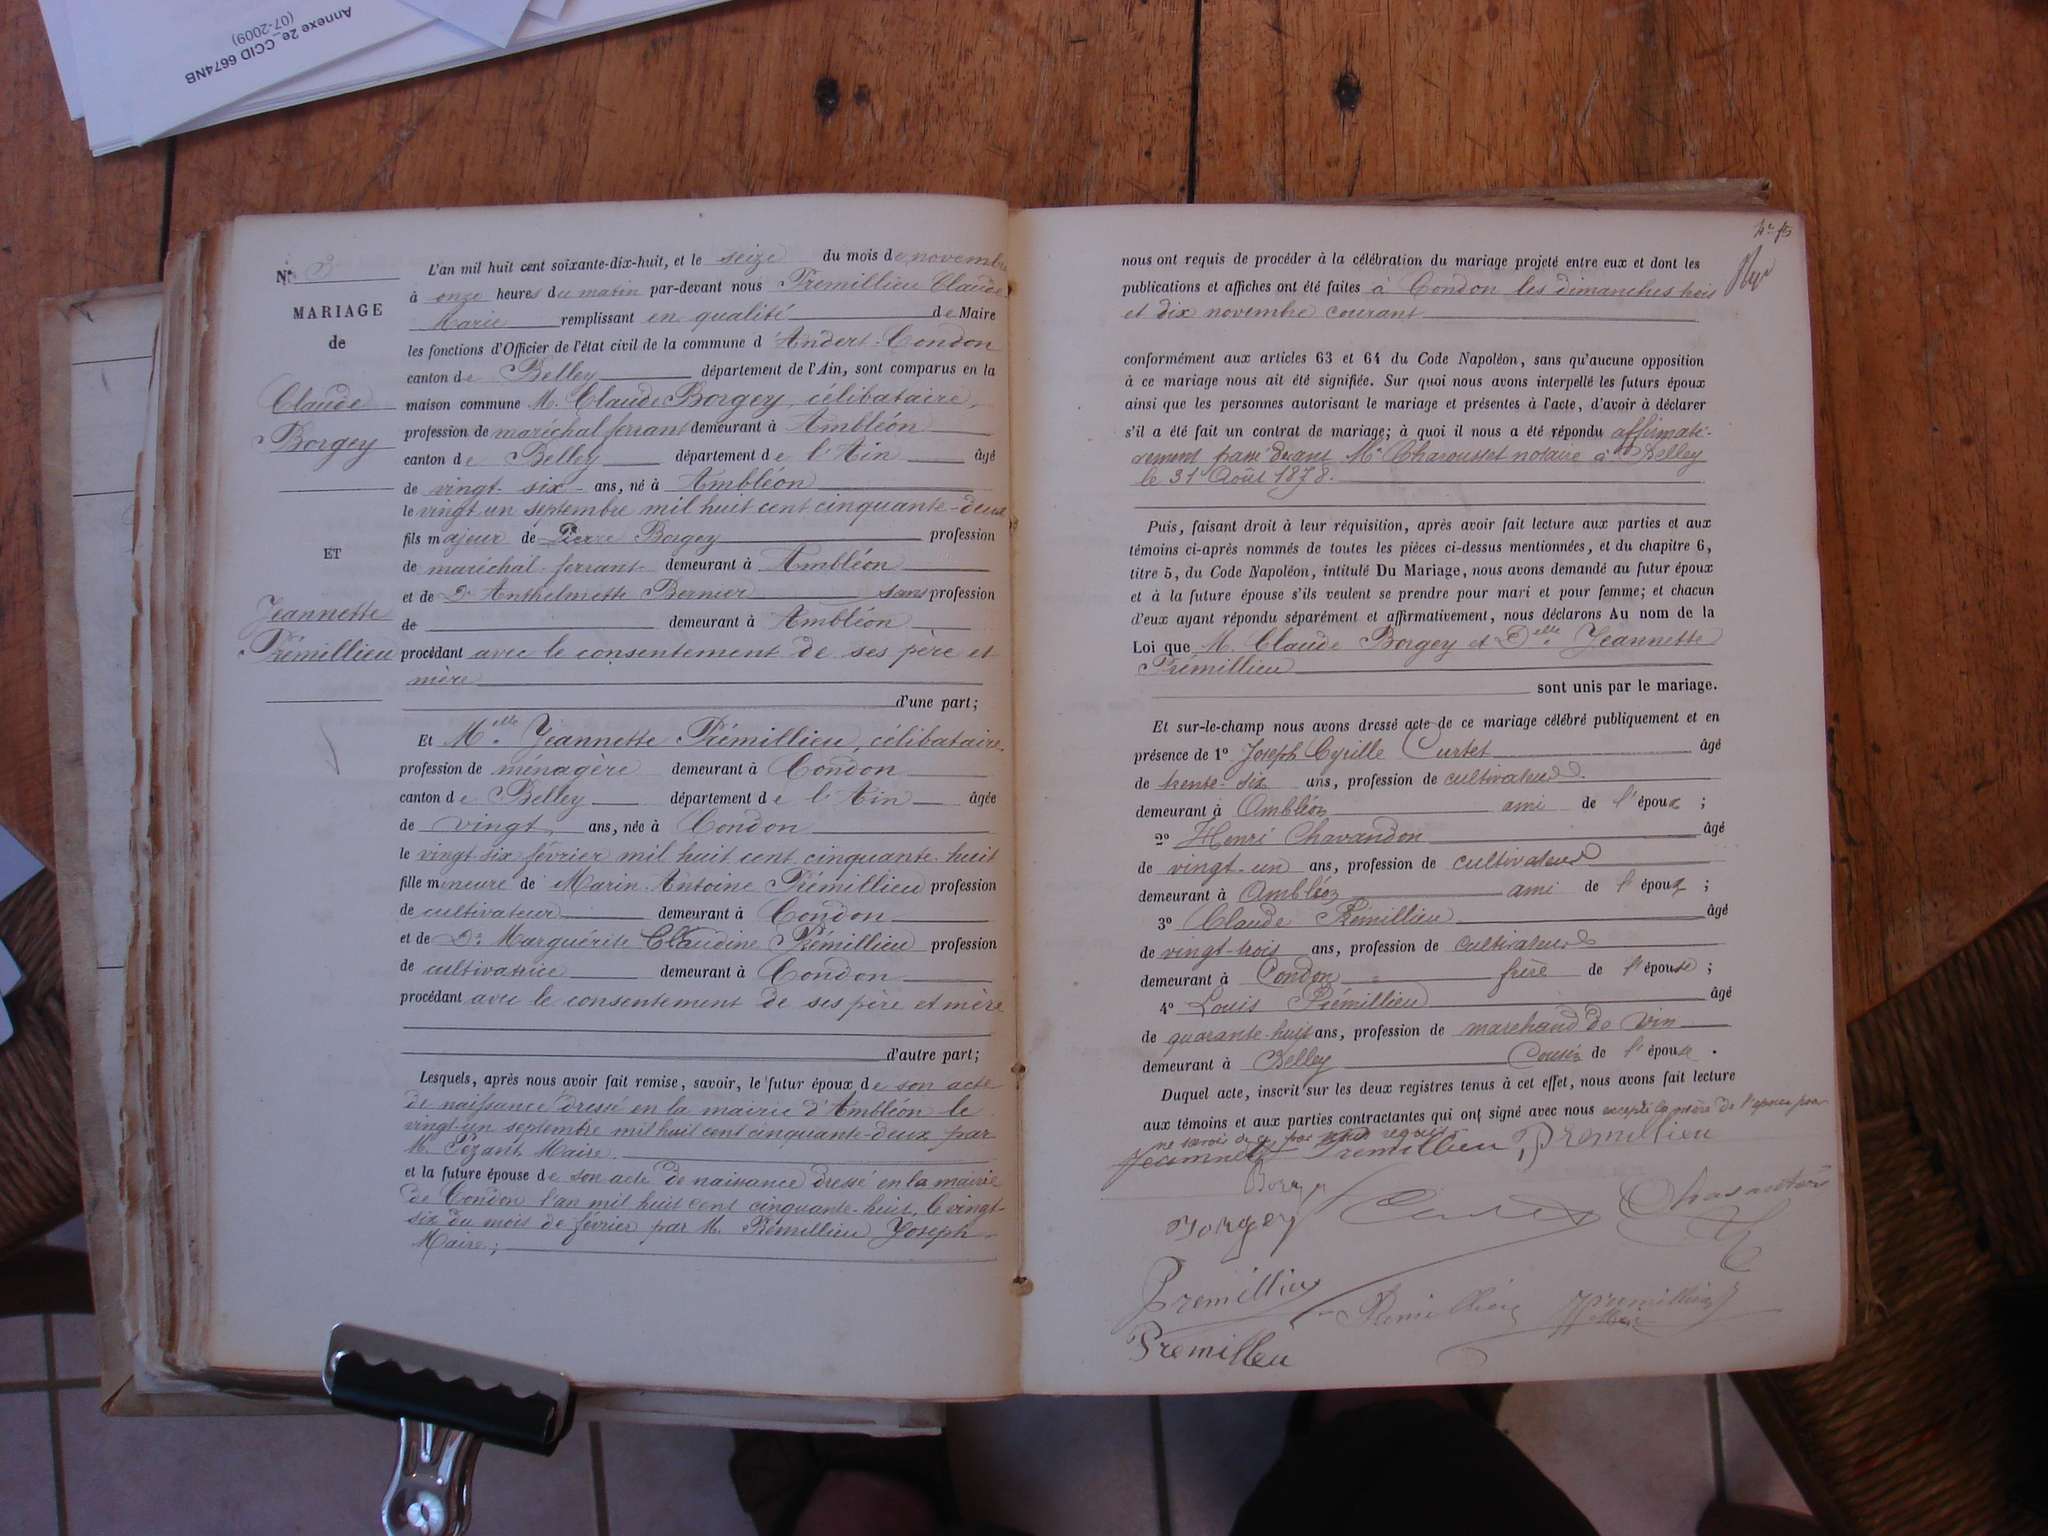 Annexe 2e_CCID 6674NB
(07-2009)
N° 3
MARIAGE
de
Claude
Borgey
ET
Jeannette
Prémillieu
L'an mil huit cent soixante-dix-huit, et le seize du mois de novembre
à onze heures du matin par-devant nous Premillieu Claude
Marie remplissant en qualité de Maire
les fonctions d'Officier de l'état civil de la commune d'Andert-Condon
canton de Belley département de l'Ain, sont comparus en la
maison commune M. Claude Borgey, célibataire,
profession de maréchal ferrant demeurant à Ambléon
canton de Belley département de l'Ain âgé
de vingt-six ans, né à Ambléon
le vingt un septembre mil huit cent cinquante-deux
fils majeur de Pierre Borgey profession
de maréchal-ferrant demeurant à Ambléon
et de De Anthelmette Bernier sans profession
de demeurant à Ambléon
procédant avec le consentement de ses père et
mère
d'une part;
Et Melle Jeannette Prémillieu, célibataire,
profession de ménagère demeurant à Condon
canton de Belley département de l'Ain âgée
de vingt ans, née à Condon
le vingt-six février mil huit cent cinquante-huit
fille mineure de Marin Antoine Prémillieu profession
de cultivateur demeurant à Condon
et de De Marguérite Claudine Prémillieu profession
de cultivatrice demeurant à Condon
procédant avec le consentement de ses père et mère
d'autre part;
Lesquels, après nous avoir fait remise, savoir, le futur époux de son acte
de naissance dressé en la mairie d'Ambléon le
vingt-un septembre mil huit cent cinquante-deux par
M. Pézant Maire.
et la future épouse de son acte de naissance dressé en la mairie
de Condon l'an mil huit cent cinquante-huit, le vingt-
six du mois de février par M. Prémillieu Joseph
Maire;
nous ont requis de procéder à la célébration du mariage projeté entre eux et dont les
publications et affiches ont été faites à Condon les dimanches trois
et dix novembre courant
conformément aux articles 63 et 64 du Code Napoléon, sans qu'aucune opposition
à ce mariage nous ait été signifiée. Sur quoi nous avons interpellé les futurs époux
ainsi que les personnes autorisant le mariage et présentes à l'acte, d'avoir à déclarer
s'il a été fait un contrat de mariage; à quoi il nous a été répondu affirmati-
vement passé devant Me Charousset notaire à Belley
le 31 Août 1878.
Puis, faisant droit à leur réquisition, après avoir fait lecture aux parties et aux
témoins ci-après nommés de toutes les pièces ci-dessus mentionnées, et du chapitre 6,
titre 5, du Code Napoléon, intitulé Du Mariage, nous avons demandé au futur époux
et à la future épouse s'ils veulent se prendre pour mari et pour femme; et chacun
d'eux ayant répondu séparément et affirmativement, nous déclarons Au nom de la
Loi que M. Claude Borgey et Delle Jeannette
Prémillieu
sont unis par le mariage.
Et sur-le-champ nous avons dressé acte de ce mariage célébré publiquement et en
présence de 1° Joseph Cyrille Curtet âgé
de trente-six ans, profession de cultivateur
demeurant à Ambléon ami de l'époux ;
2° Henri Chavandon âgé
de vingt-un ans, profession de cultivateur
demeurant à Ambléon ami de l'époux ;
3° Claude Prémillieu âgé
de vingt-trois ans, profession de cultivateur
demeurant à Condon frère de l'épouse ;
4° Louis Prémillieu âgé
de quarante-huit ans, profession de marchand de vin
demeurant à Belley Cousin de l'épouse .
Duquel acte, inscrit sur les deux registres tenus à cet effet, nous avons fait lecture
aux témoins et aux parties contractantes qui ont signé avec nous excepté la mère de l'époux pour
ne savoir de ce par nous requis
Jeannette Premillieu, Premillieu
Borgey
Premillieu
Premillieu